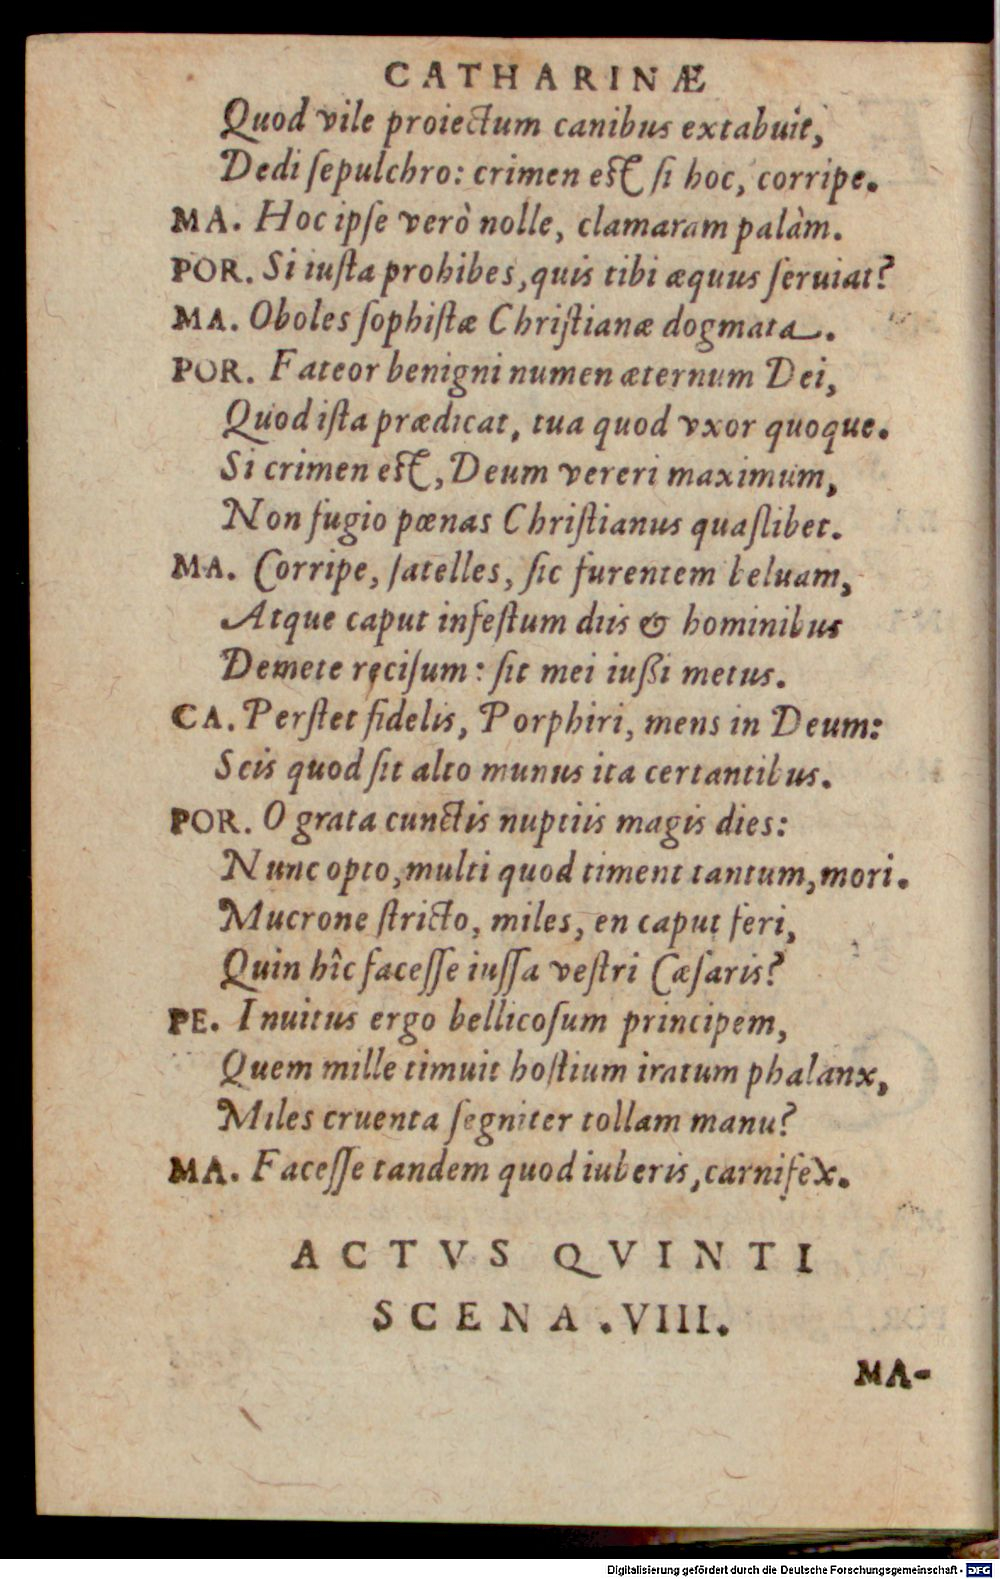 CATHARINÆ
Quod vile proiectum canibus extabuit,
Dedi ſepulchro: crimen eſt ſi hoc, corripe.
MA. Hoc ipſe verò nolle, clamaram palàm.
POR. Si iuſta prohibes, quis tibi æquus ſeruiat?
MA. Oboles ſophiſtæ Chriſtianæ dogmata.
POR. Fateor benigni numen æternum Dei,
Quod iſta prædicat, tua quod vxor quoque.
Si crimen eſt, Deum vereri maximum,
Non fugio pœnas Chriſtianus quaſlibet.
MA. Corripe, ſatelles, ſic furentem beluam,
Atque caput infeſtum diis & hominibus
Demete reciſum: ſit mei iuſſi metus.
CA. Perſtet fidelis, Porphiri, mens in Deum:
Scis quod ſit alto munus ita certantibus.
POR. O grata cunctis nuptiis magis dies:
Nunc opto, multi quod timent tantum, mori.
Mucrone ſtricto, miles, en caput feri,
Quin hîc faceſſe iuſſa veſtri Cæſaris?
PE. Inuitus ergo bellicoſum principem,
Quem mille timuit hoſtium iratum phalanx,
Miles cruenta ſegniter tollam manu?
MA. Faceſſe tandem quod iuberis, carnifex.
ACTVS QVINTI
SCENA .VIII.
MA-
Digitalisierung gefördert durch die Deutsche Forschungsgemeinschaft - DFG